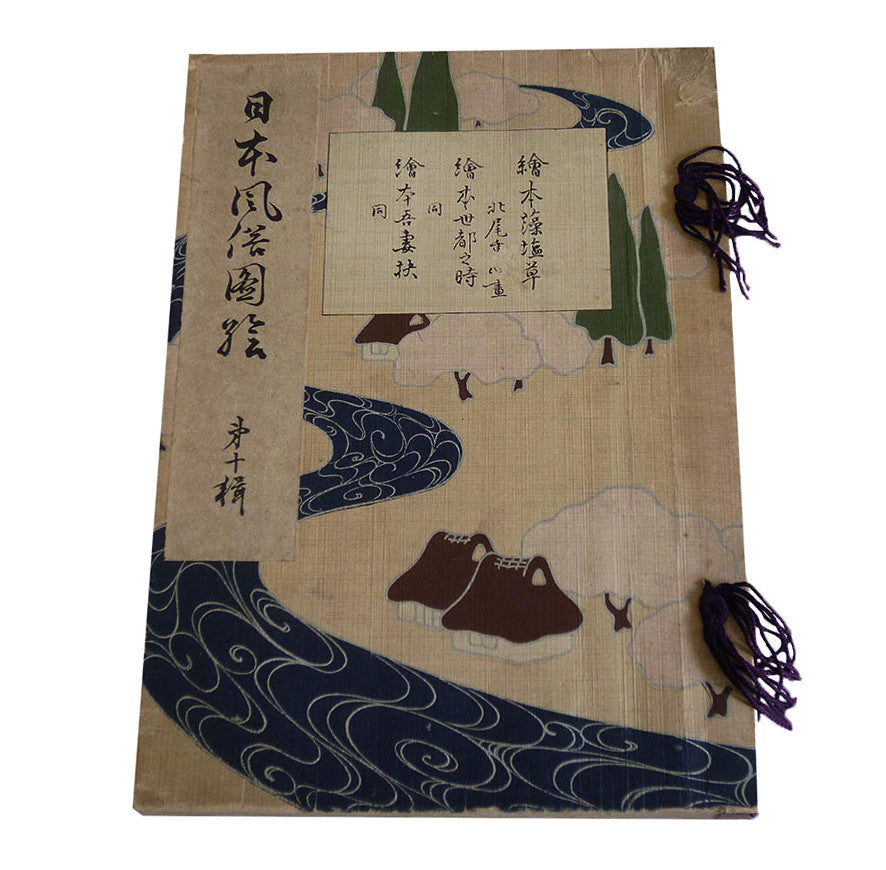 日本風俗圖繪
第十輯
繪本藻塩草
北尾畫
繪本世都之時
同
繪本吾妻抉
同